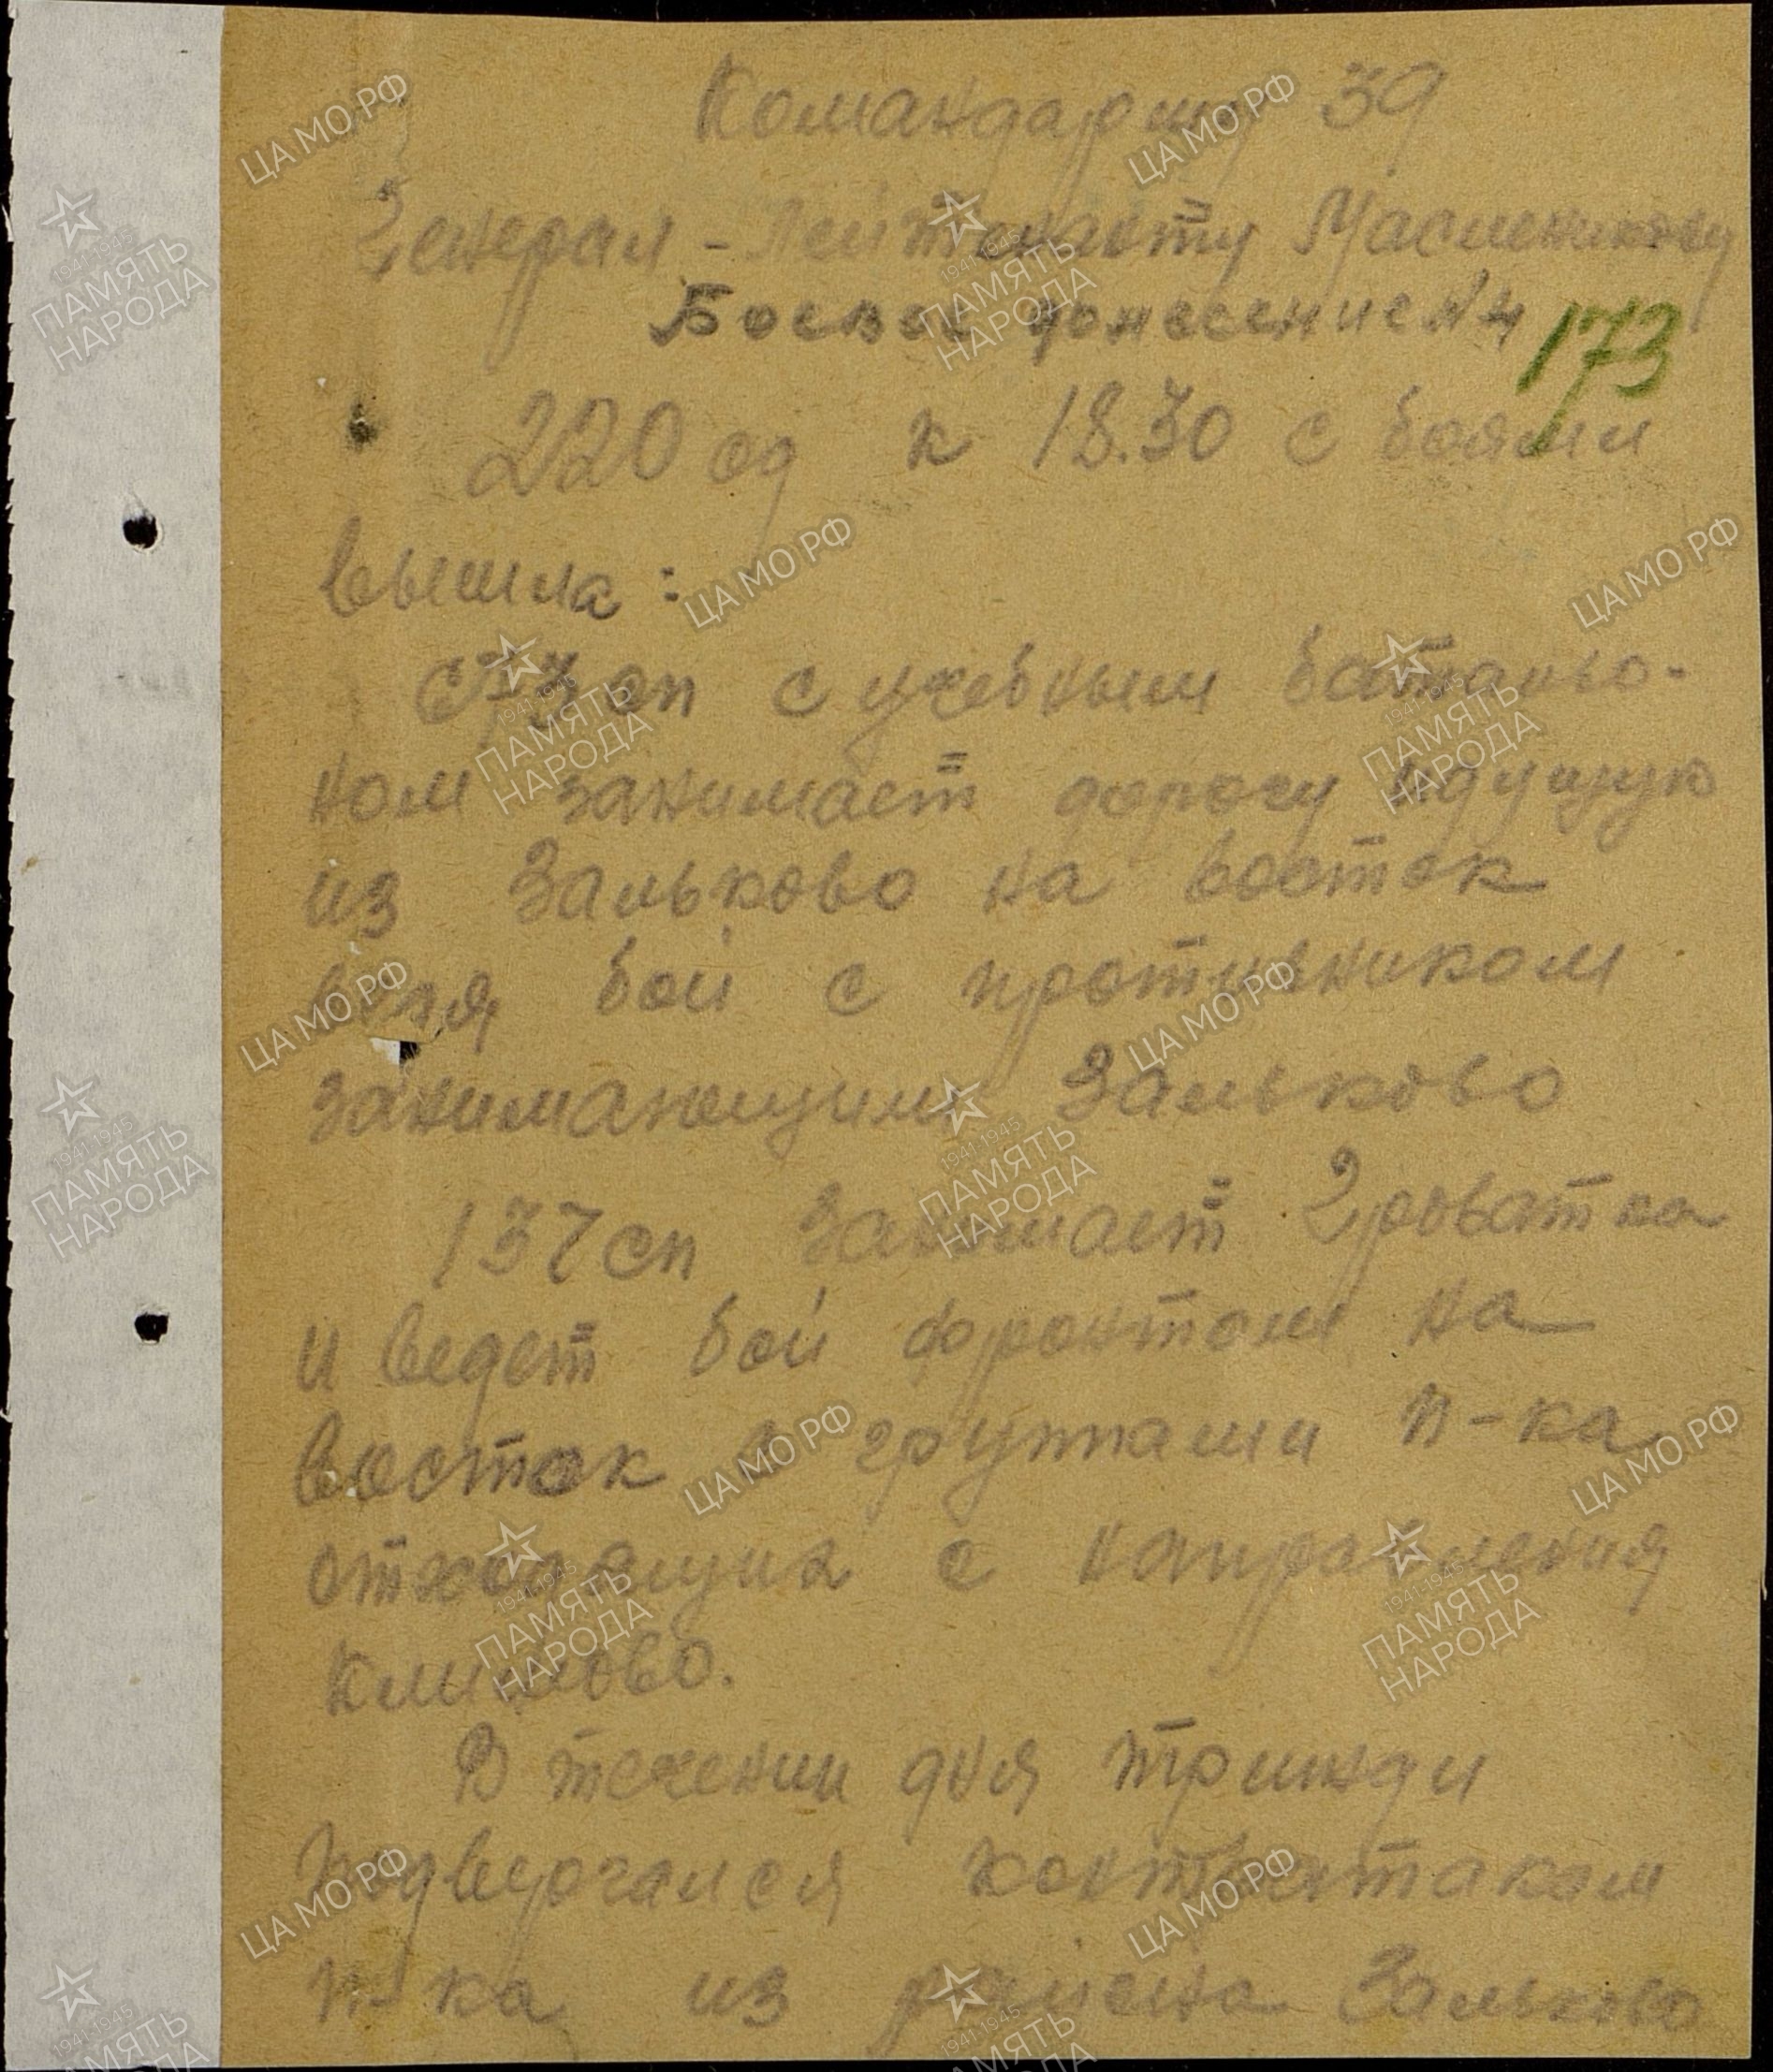 Командарму 39
Генерал-лейтенанту Масленикову
Боевое донесение №4
173
220 сд к 18.30 с боями
вышла:
673 сп с учебным батальо-
ном занимает дорогу идущую
из Зальково на восток
ведя бой с противником
занимающим Зальково
137 сп занимает Гроватка
и ведет бой фронтом на
восток с группами п-ка
отходящих с направления
Климово.
В течении дня трижди
подвергался контратакам
п-ка из района Зальково